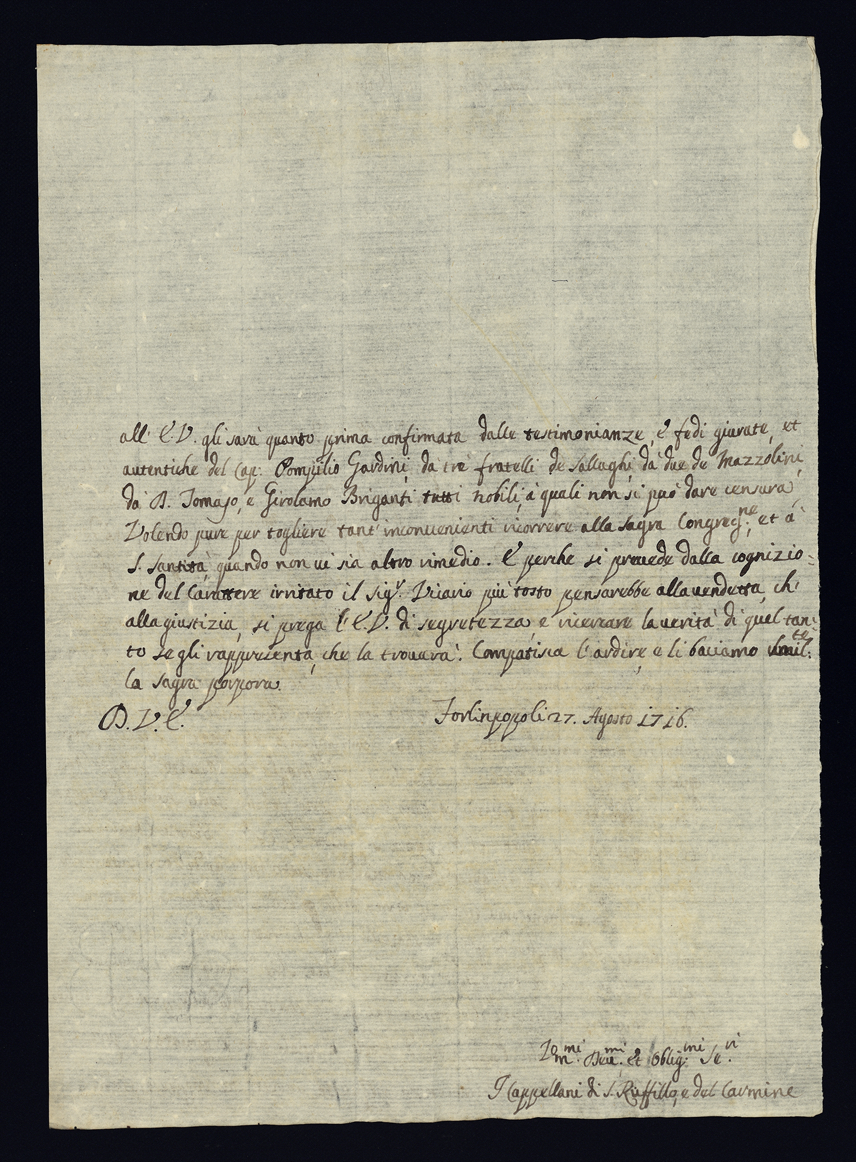 all' E.V. gli sarà quanto prima confirmata dalle testimonianze, e fedi giurate, et
autentiche del Cap: Pompilio Gardini, da tre fratelli de Sallaghi, da due de Mazzolini,
da D. Tomaso, e Girolamo Briganti tutti nobili, à quali non si può dare censura,
Volendo pure per togliere tant' inconuenienti ricorrere alla Sagra Congreg.ne, et à
S. Santità quando non ui sia altro rimedio. E perche si preuede dalla cognizio-
ne del Carattere irritato il Sig.r Vicario più tosto pensarebbe alla uendetta, ch'
alla giustizia, si prega l'E.V. di segretezza e ricercare la uerità di quel tan-
to se gli rappresenta, che la trouarà. Compatisca l'ardire, e li baciamo humil.te
la sagra porpora.
D. V. E. Forlinpopoli 27. Agosto 1716.
Deu.mi et Oblig.mi Se.ri
I Cappellani di S. Ruffillo, e del Carmine